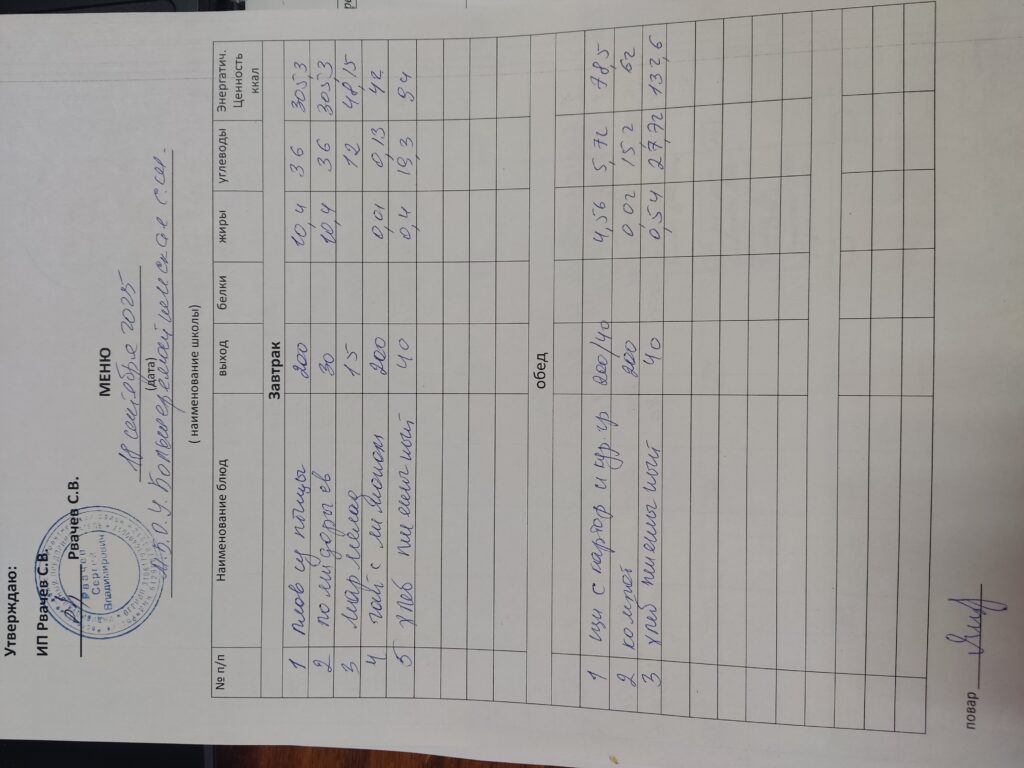 Утверждаю:
ИП Рвачев С.В.
Рвачев С.В.
Рвачев
Сергей
Владимирович
МЕНЮ
18 сентября 2025
(дата)
М.Б.О.У. Больше
( наименование школы)
№ п/п Наименование блюд выход белки жиры углеводы Энергатич. Ценность ккал
Завтрак
1 плов из птицы 200 10,4 36 305,3
2 помидоры св 30 10,4 36 305,3
3 мармелад 15 12 48,15
4 чай с лимоном 200 0,01 0,13 42
5 хлеб пшеничный 40 0,4 19,3 94
обед
1 щи с картор и цур.гр 200/40 4,56 5,72 78,5
2 компот 200 0,02 15,2 62
3 хлеб пшеничный 40 0,54 27,72 132,6
повар